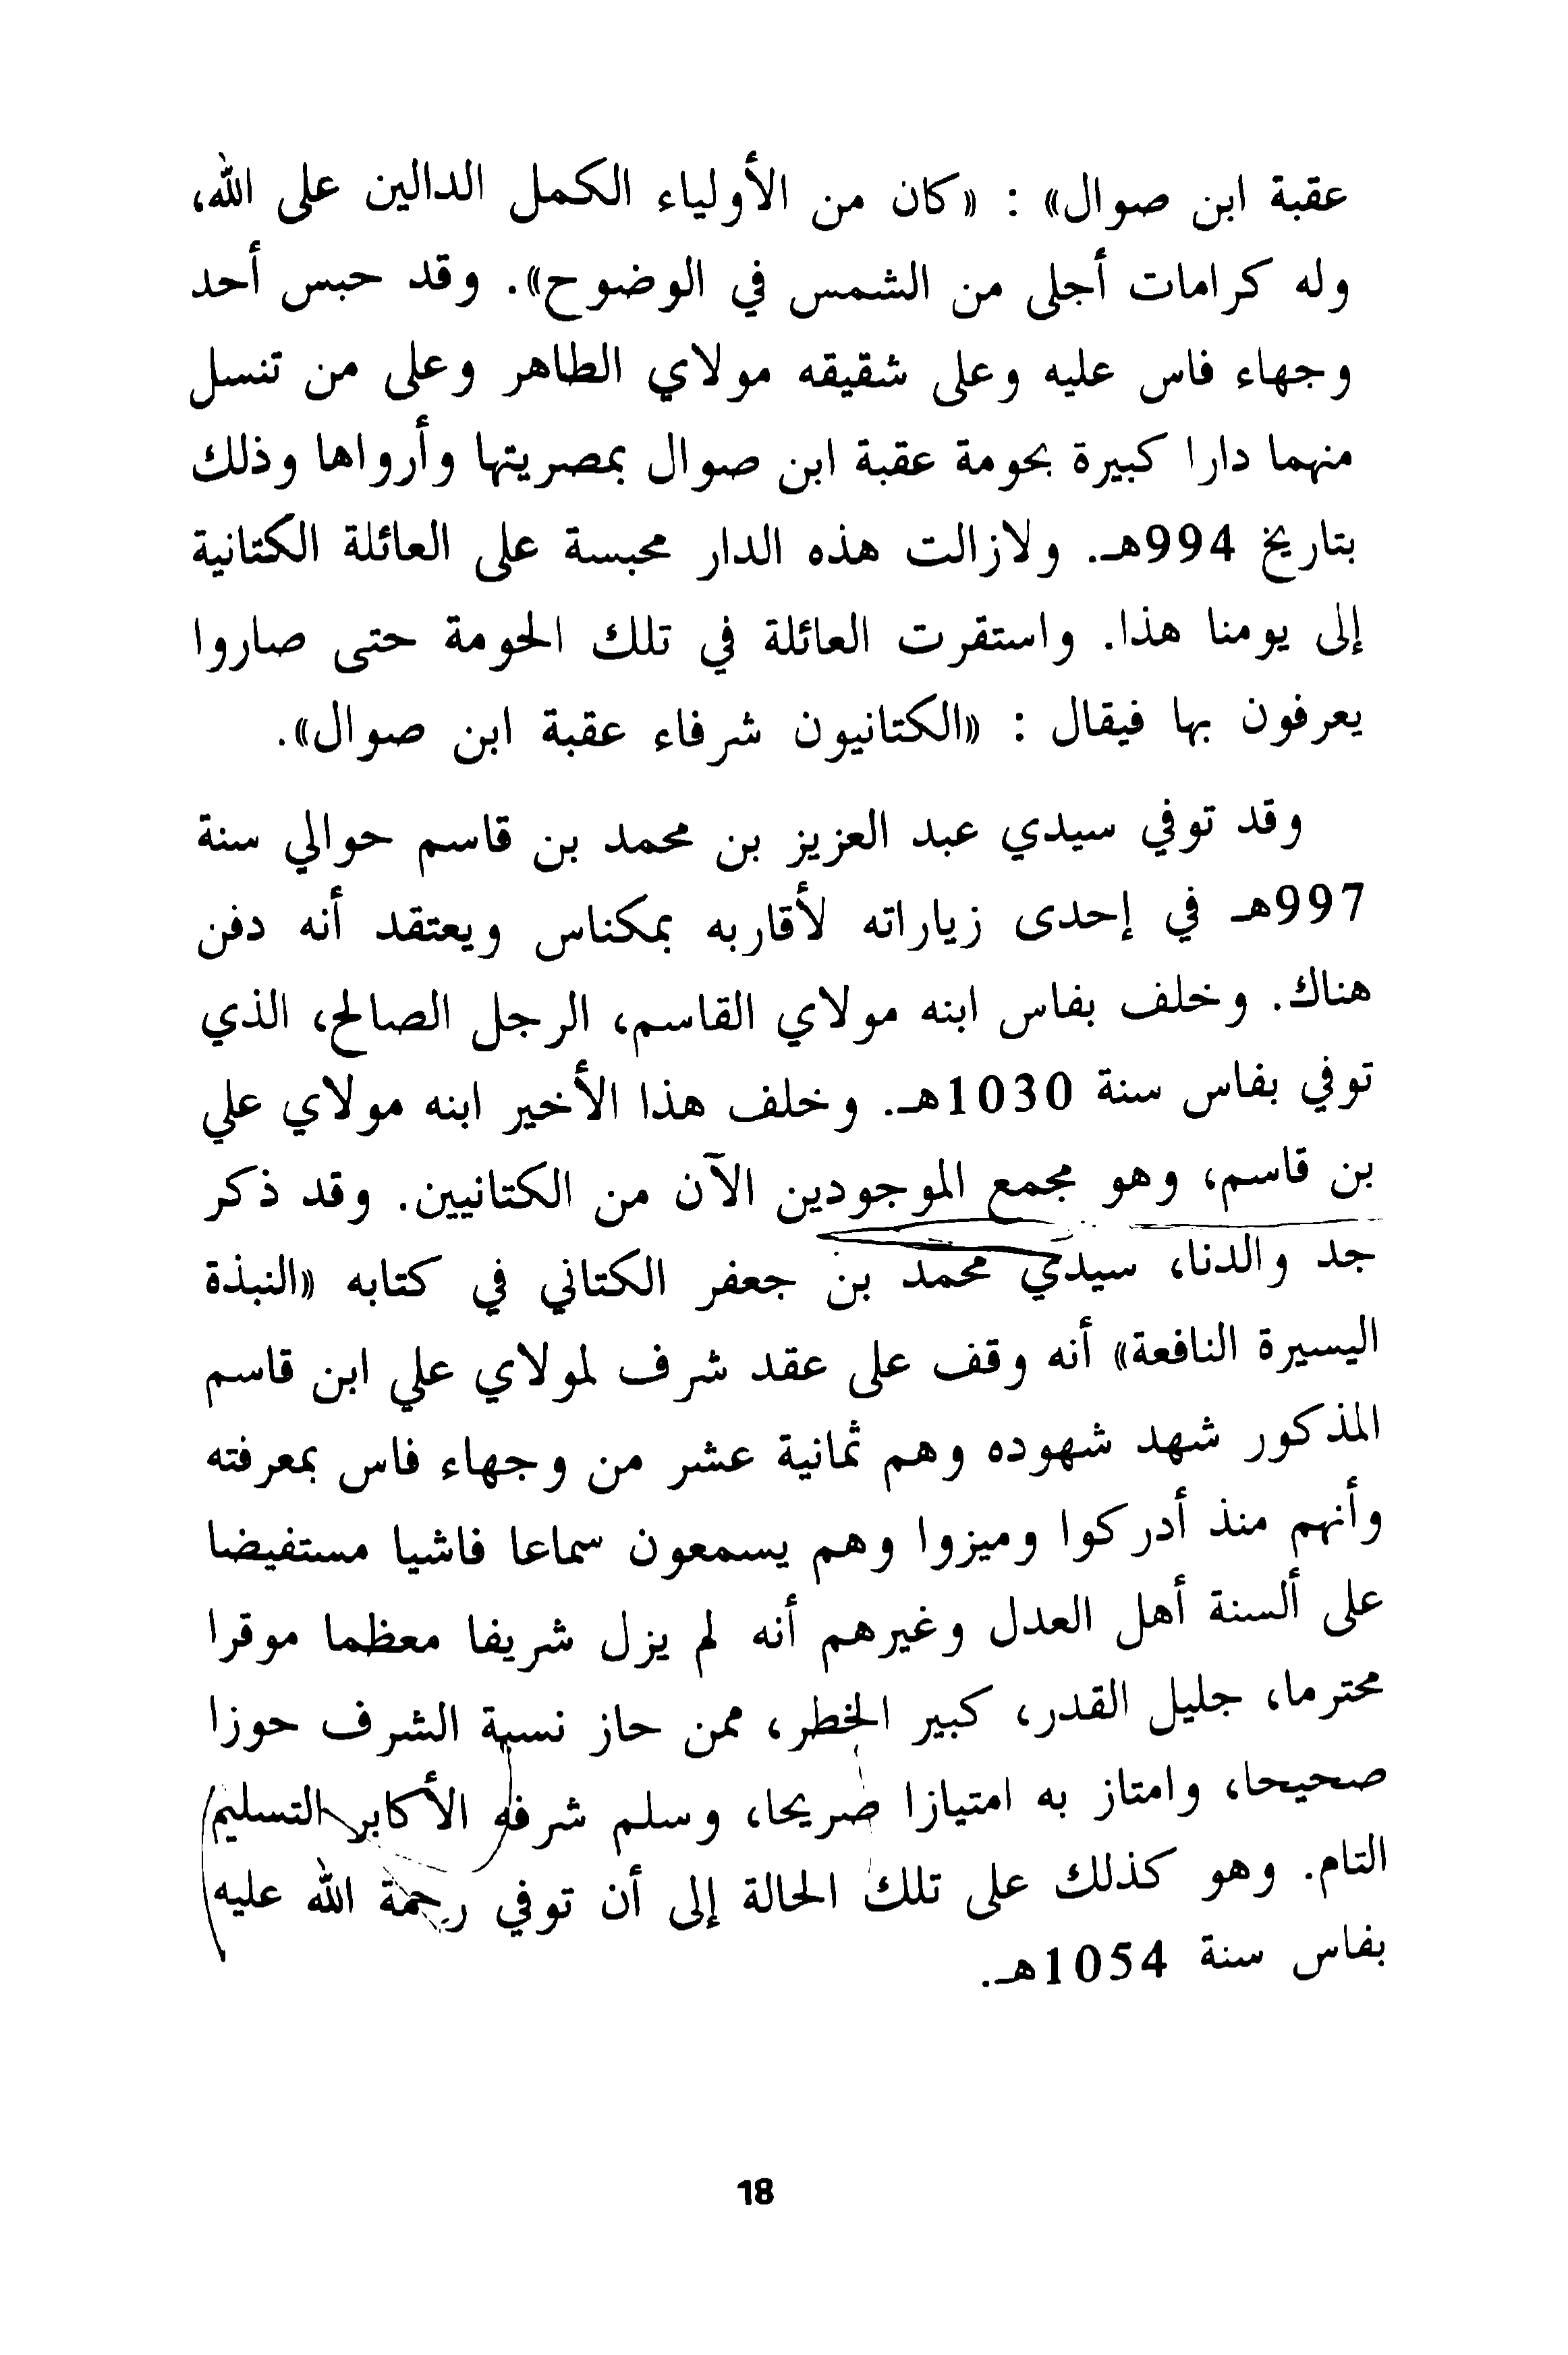 عقبة ابن صوال» : «كان من الأولياء الكمل الدالين على الله،
وله كرامات أجلى من الشمس في الوضوح». وقد حبس أحد
وجهاء فاس عليه وعلى شقيقه مولاي الطاهر وعلى من تنسل
منهما دارا كبيرة بحومة عقبة ابن صوال بمصريتها وأرواها وذلك
بتاريخ 994هـ. ولازالت هذه الدار محبسة على العائلة الكتانية
إلى يومنا هذا. واستقرت العائلة في تلك الحومة حتى صاروا
يعرفون بها فيقال : «الكتانيون شرفاء عقبة ابن صوال».
وقد توفي سيدي عبد العزيز بن محمد بن قاسم حوالي سنة
997هـ في إحدى زياراته لأقاربه بمكناس ويعتقد أنه دفن
هناك. وخلف بفاس ابنه مولاي القاسم، الرجل الصالح، الذي
توفي بفاس سنة 1030هـ. وخلف هذا الأخير ابنه مولاي علي
بن قاسم، وهو مجمع الموجودين الآن من الكتانيين. وقد ذكر
جد والدنا، سيدي محمد بن جعفر الكتاني في كتابه «النبذة
اليسيرة النافعة» أنه وقف على عقد شرف لمولاي علي ابن قاسم
المذكور شهد شهوده وهم ثمانية عشر من وجهاء فاس بمعرفته
وأنهم منذ أدركوا وميزوا وهم يسمعون سماعا فاشيا مستفيضا
على ألسنة أهل العدل وغيرهم أنه لم يزل شريفا معظما موقرا
محترما، جليل القدر، كبير الخطر، ممن حاز نسبة الشرف حوزا
صحيحا، وامتاز به امتيازا صريحا، وسلم شرفه الأكابر التسليم
التام. وهو كذلك على تلك الحالة إلى أن توفي رحمة الله عليه
بفاس سنة 1054هـ.
18